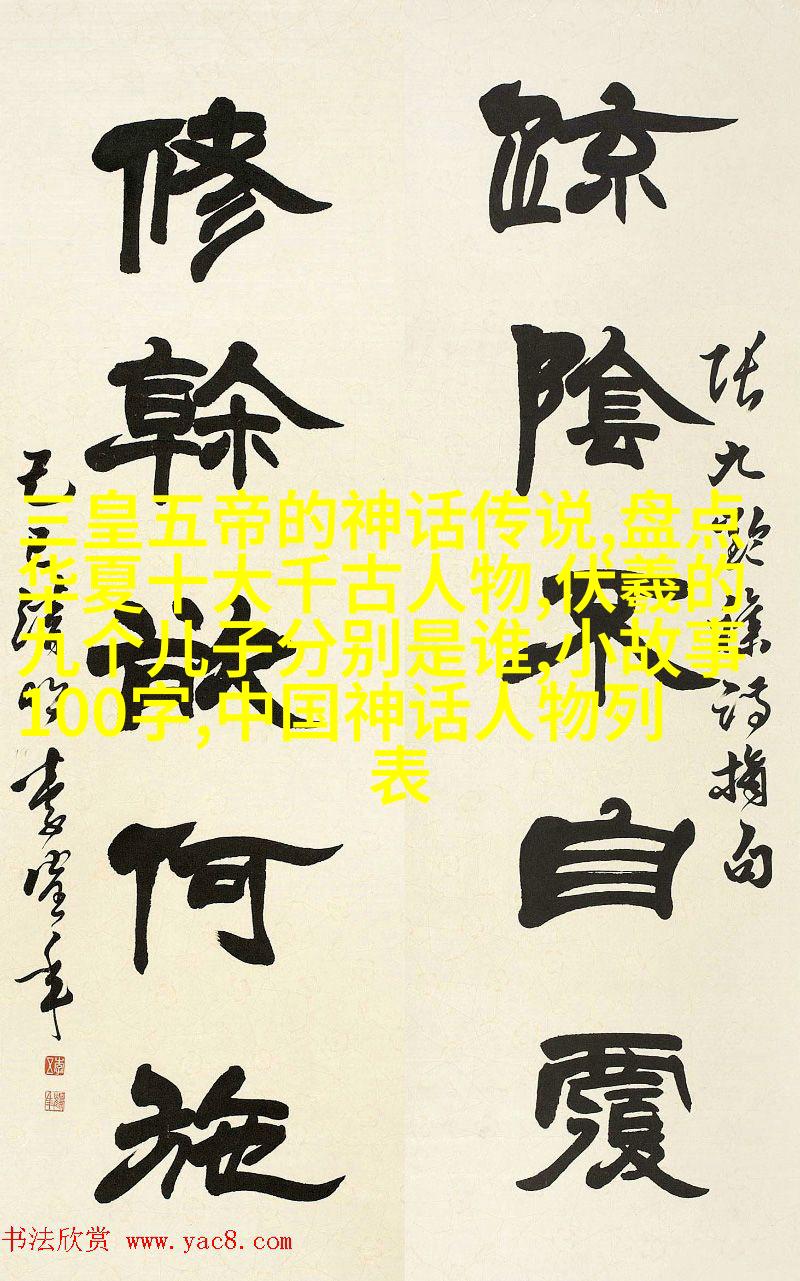 疏陰不自覆
張九齡集詩摘句
修幹欲何施
三皇五帝的神话传说,盘点
华夏十大千古人物,伏羲的
九个儿子分别是谁,小故事
100字,中国神话人物列
表
书法欣赏 www.yac8.com